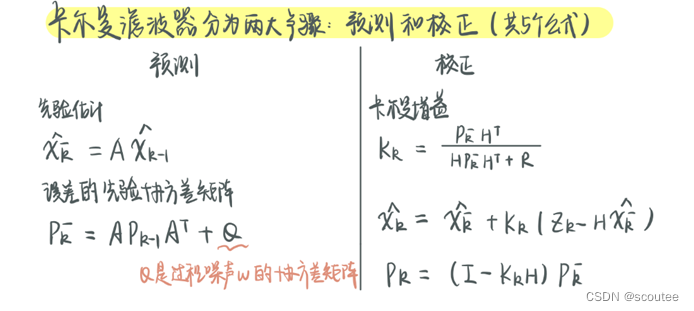 卡尔曼滤波器分为两大步骤：预测和校正（共5个公式）
预测
先验估计
x̂ₖ⁻ = A x̂ₖ₋₁
误差的先验协方差矩阵
Pₖ⁻ = A Pₖ₋₁ Aᵀ + Q
Q是过程噪声w的协方差矩阵
校正
卡尔曼增益
Kₖ = Pₖ⁻Hᵀ / HPₖ⁻Hᵀ + R
x̂ₖ = x̂ₖ⁻ + Kₖ ( Zₖ - H x̂ₖ⁻ )
Pₖ = ( I - KₖH ) Pₖ⁻
CSDN @scoutee